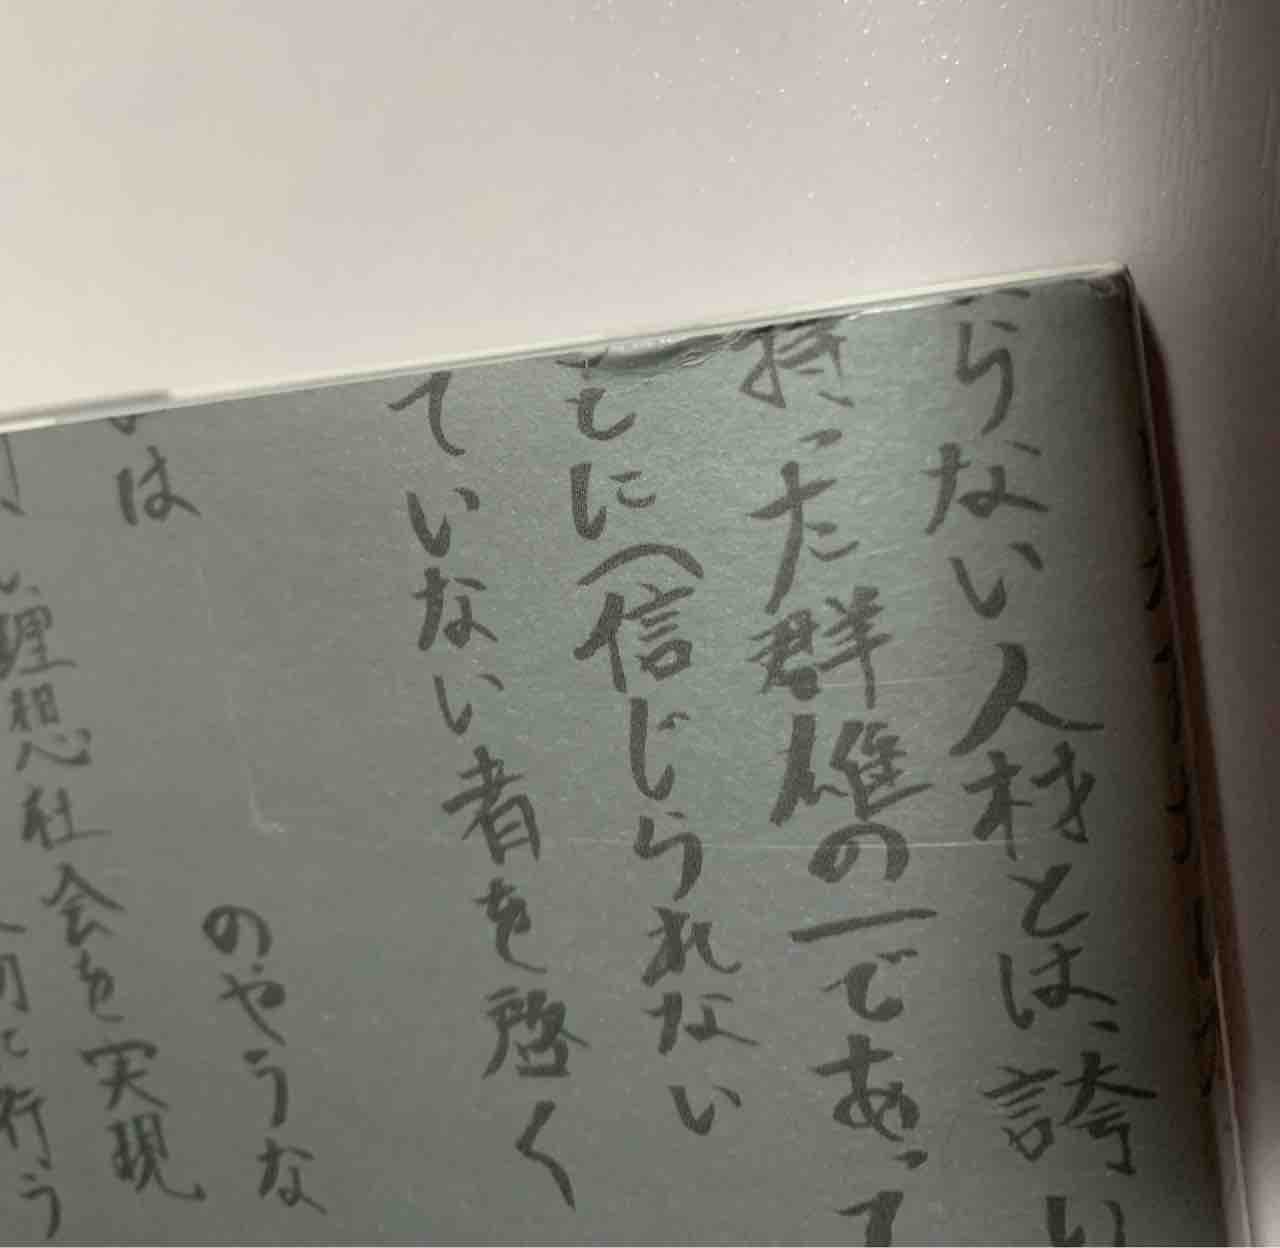 らない人材とは、誇り
持った群雄の一であって
もに(信じられない
ていない者を啓く
のやうな
は
理想社会を実現
行う